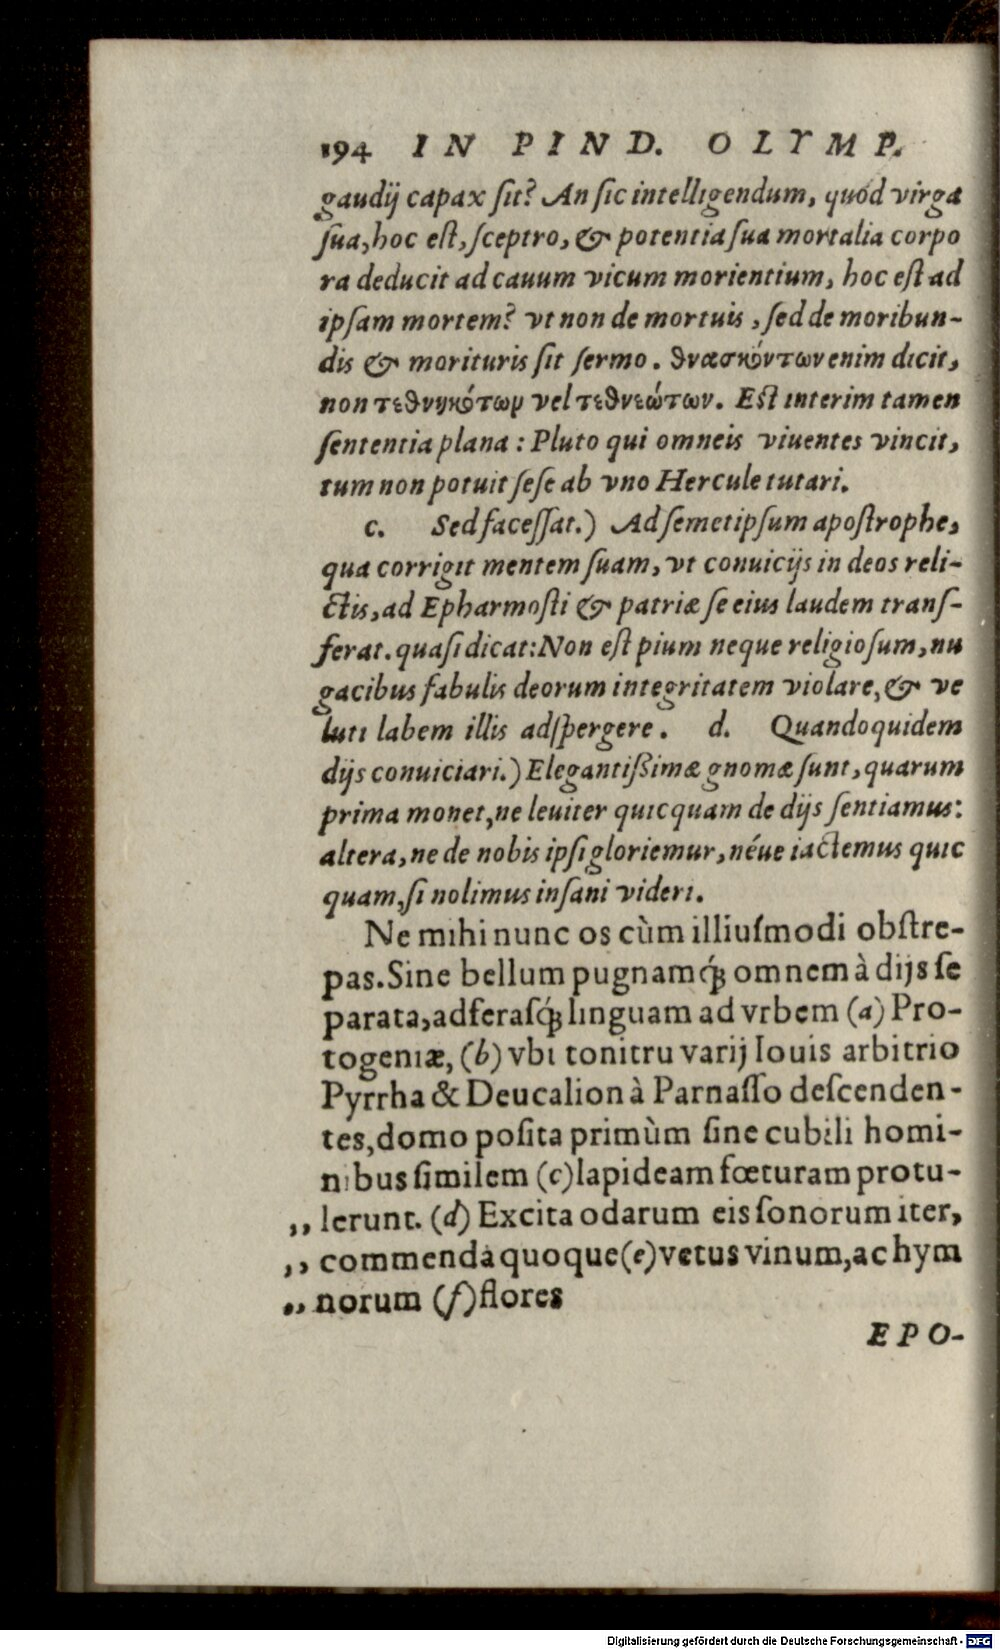 194 IN PIND. OLYMP.
gaudij capax ſit? An ſic intelligendum, quòd virga
ſua, hoc eſt, ſceptro, & potentia ſua mortalia corpo
ra deducit ad cauum vicum morientium, hoc eſt ad
ipſam mortem? vt non de mortuis, ſed de moribun-
dis & morituris ſit ſermo. θνασκόντων enim dicit,
non τεθνηκότων vel τεθνεώτων. Eſt interim tamen
ſententia plana: Pluto qui omneis viuentes vincit,
tum non potuit ſeſe ab vno Hercule tutari.
c. Sed faceſſat.) Ad ſemetipſum apoſtrophe,
qua corrigit mentem ſuam, vt conuicijs in deos reli-
ctis, ad Epharmoſti & patriæ ſe eius laudem tranſ-
ferat. quaſi dicat: Non eſt pium neque religioſum, nu
gacibus fabulis deorum integritatem violare, & ve
luti labem illis adſpergere. d. Quandoquidem
dijs conuiciari.) Elegantißimæ gnomæ ſunt, quarum
prima monet, ne leuiter quicquam de dijs ſentiamus:
altera, ne de nobis ipſi gloriemur, néue iactemus quic
quam, ſi nolimus inſani videri.
Ne mihi nunc os cùm illiuſmodi obſtre-
pas. Sine bellum pugnamq́; omnem à dijs ſe
parata, adferaſq́; linguam ad vrbem (a) Pro-
togeniæ, (b) vbi tonitru varij Iouis arbitrio
Pyrrha & Deucalion à Parnaſſo deſcenden-
tes, domo poſita primùm ſine cubili homi-
nibus ſimilem (c) lapideam fœturam protu-
,, lerunt. (d) Excita odarum eis ſonorum iter,
,, commenda quoque (e) vetus vinum, ac hym
,, norum (f) flores
EPO-
Digitalisierung gefördert durch die Deutsche Forschungsgemeinschaft - DFG